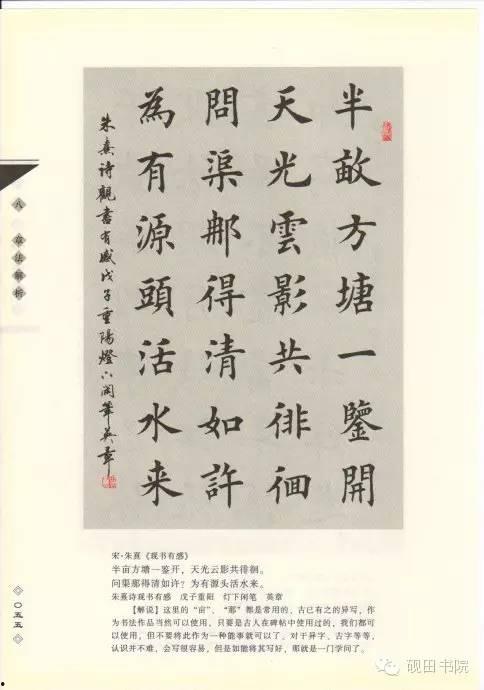 半畝方塘一鑒開
天光雲影共徘徊
問渠那得清如許
為有源頭活水来
朱熹诗觀書有感戊子重陽燈下閑筆英章
八 章法解析
宋·朱熹《观书有感》
半亩方塘一鉴开，天光云影共徘徊。
问渠那得清如许？为有源头活水来。
朱熹诗观书有感 戊子重阳 灯下闲笔 英章
【解说】这里的“亩”、“那”都是常用的、古已有之的异写，作
为书法作品当然可以使用，只要是古人在碑帖中使用过的，我们都可
以使用，但不要将此作为一种能事就可以了。对于异字、古字等等，
认识并不难，会写很容易，但是如能将其写好，那就是一门学问了。
〇五五
砚田书院